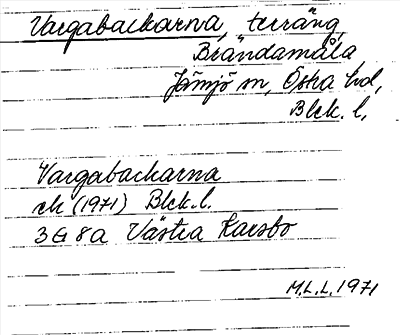 Vargabackarna, terräng,
Brändamåla
Jämjö sn, Östra hd,
Blek. l.
Vargabackarna
ek (1971) Blek. l.
3 G 8 a Västra Karsbo
M.L.L. 1971